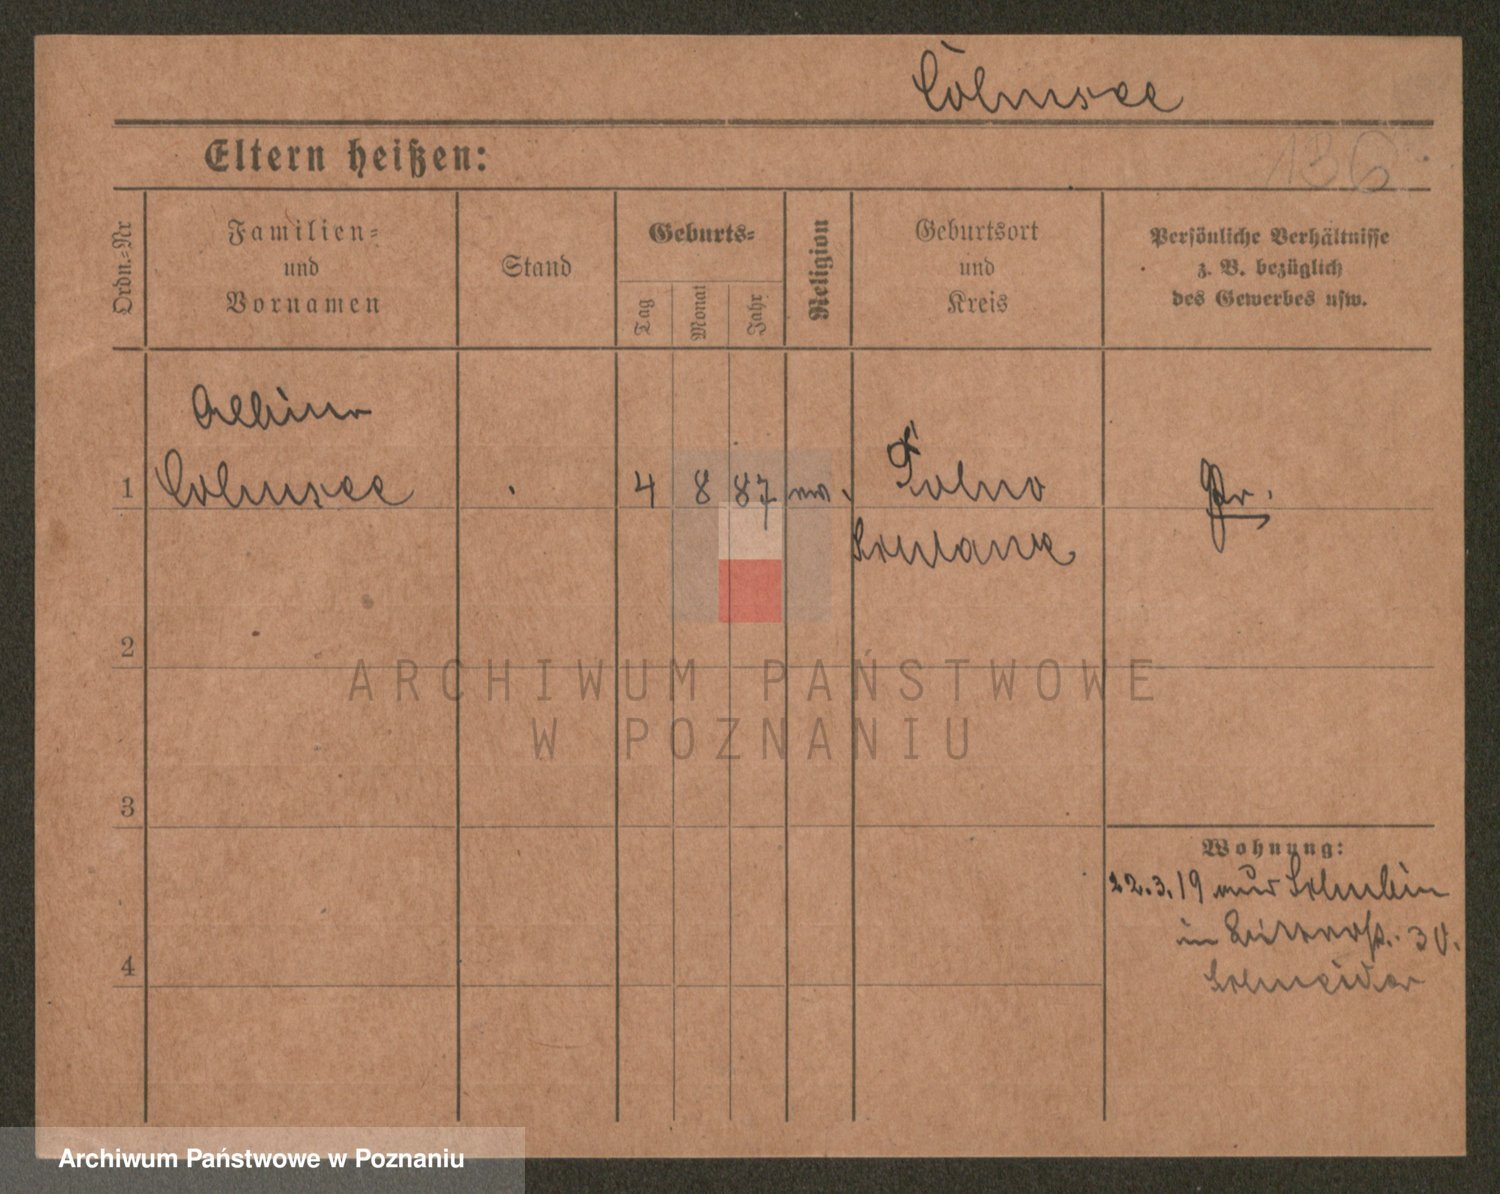 Cölmsee
136
Eltern heißen:
Ordn.-Nr
Familien-
und
Vornamen
Stand
Geburts-
Tag
Monat
Jahr
Religion
Geburtsort
und
Kreis
Persönliche Verhältnisse
z. B. bezüglich
des Gewerbes usw.
Albine
1 Colmsee 4 8 87 Pr.
2
3
4
Wohnung:
22.3.19 Schubin
in 30.
Schneider
ARCHIWUM PAŃSTWOWE
W POZNANIU
Archiwum Państwowe w Poznaniu